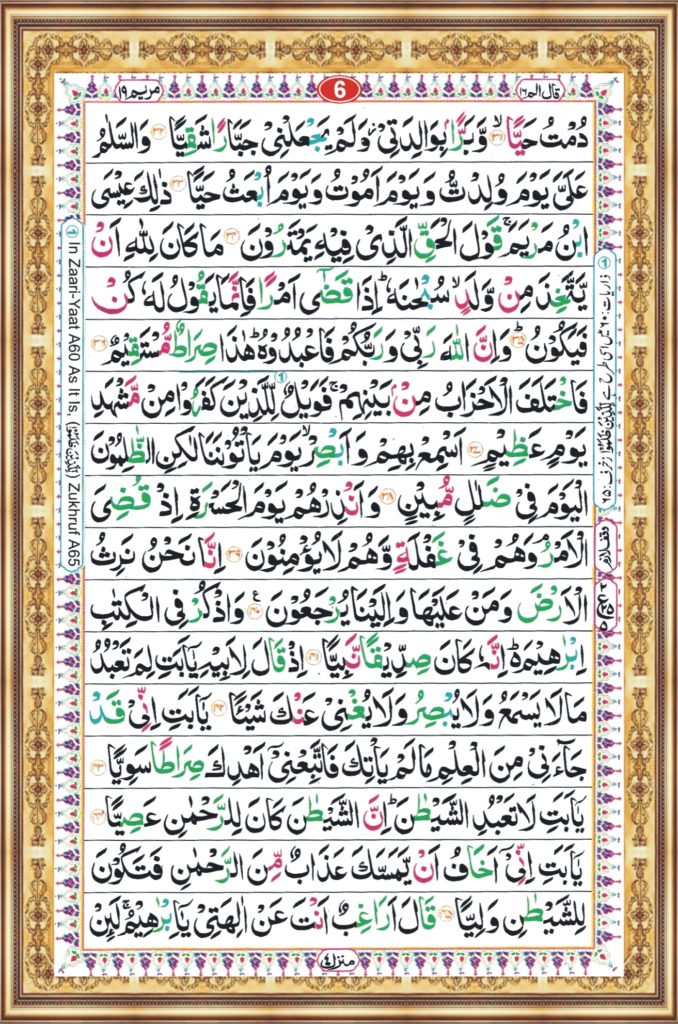 قال الم ١٦
6
مريم ١٩
دُمْتُ حَيًّا ۝٣١ وَّبَرًّۢا بِوَالِدَتِیْ ؗ وَلَمْ یَجْعَلْنِیْ جَبَّارًا شَقِیًّا ۝٣٢ وَالسَّلٰمُ
عَلَیَّ یَوْمَ وُلِدْتُّ وَیَوْمَ اَمُوْتُ وَیَوْمَ اُبْعَثُ حَیًّا ۝٣٣ ذٰلِكَ عِیْسَی
ابْنُ مَرْیَمَ ۚ قَوْلَ الْحَقِّ الَّذِیْ فِیْهِ یَمْتَرُوْنَ ۝٣٤ مَا كَانَ لِلّٰهِ اَنْ
یَّتَّخِذَ مِنْ وَّلَدٍ ۙ سُبْحٰنَهٗ ؕ اِذَا قَضٰۤی اَمْرًا فَاِنَّمَا یَقُوْلُ لَهٗ كُنْ
فَیَكُوْنُ ۝٣٥ وَاِنَّ اللّٰهَ رَبِّیْ وَرَبُّكُمْ فَاعْبُدُوْهُ ؕ هٰذَا صِرَاطٌ مُّسْتَقِیْمٌ ۝٣٦
فَاخْتَلَفَ الْاَحْزَابُ مِنْۢ بَیْنِهِمْ ۚ فَوَیْلٌ لِّلَّذِیْنَ كَفَرُوْا مِنْ مَّشْهَدِ
یَوْمٍ عَظِیْمٍ ۝٣٧ اَسْمِعْ بِهِمْ وَاَبْصِرْ ۙ یَوْمَ یَاْتُوْنَنَا لٰكِنِ الظّٰلِمُوْنَ
الْیَوْمَ فِیْ ضَلٰلٍ مُّبِیْنٍ ۝٣٨ وَاَنْذِرْهُمْ یَوْمَ الْحَسْرَةِ اِذْ قُضِیَ
الْاَمْرُ ۘ وَهُمْ فِیْ غَفْلَةٍ وَّهُمْ لَا یُؤْمِنُوْنَ ۝٣٩ اِنَّا نَحْنُ نَرِثُ
الْاَرْضَ وَمَنْ عَلَیْهَا وَاِلَیْنَا یُرْجَعُوْنَ ۝٤٠ وَاذْكُرْ فِی الْكِتٰبِ
اِبْرٰهِیْمَ ؕ اِنَّهٗ كَانَ صِدِّیْقًا نَّبِیًّا ۝٤١ اِذْ قَالَ لِاَبِیْهِ یٰۤاَبَتِ لِمَ تَعْبُدُ
مَا لَا یَسْمَعُ وَلَا یُبْصِرُ وَلَا یُغْنِیْ عَنْكَ شَیْـًٔا ۝٤٢ یٰۤاَبَتِ اِنِّیْ قَدْ
جَآءَنِیْ مِنَ الْعِلْمِ مَا لَمْ یَاْتِكَ فَاتَّبِعْنِیْۤ اَهْدِكَ صِرَاطًا سَوِیًّا ۝٤٣
یٰۤاَبَتِ لَا تَعْبُدِ الشَّیْطٰنَ ؕ اِنَّ الشَّیْطٰنَ كَانَ لِلرَّحْمٰنِ عَصِیًّا ۝٤٤
یٰۤاَبَتِ اِنِّیْۤ اَخَافُ اَنْ یَّمَسَّكَ عَذَابٌ مِّنَ الرَّحْمٰنِ فَتَكُوْنَ
لِلشَّیْطٰنِ وَلِیًّا ۝٤٥ قَالَ اَرَاغِبٌ اَنْتَ عَنْ اٰلِهَتِیْ یٰۤاِبْرٰهِیْمُ ۚ لَىِٕنْ
منزل ٤
① ذاریات: ٦٠ میں اسی طرح ہے لِلَّذِیْنَ ظَلَمُوْا زخرف: ٦٥
وقف لازم
① In Zaari-Yaat A60 As It Is, (لِلَّذِیْنَ ظَلَمُوْا) Zukhruf A65